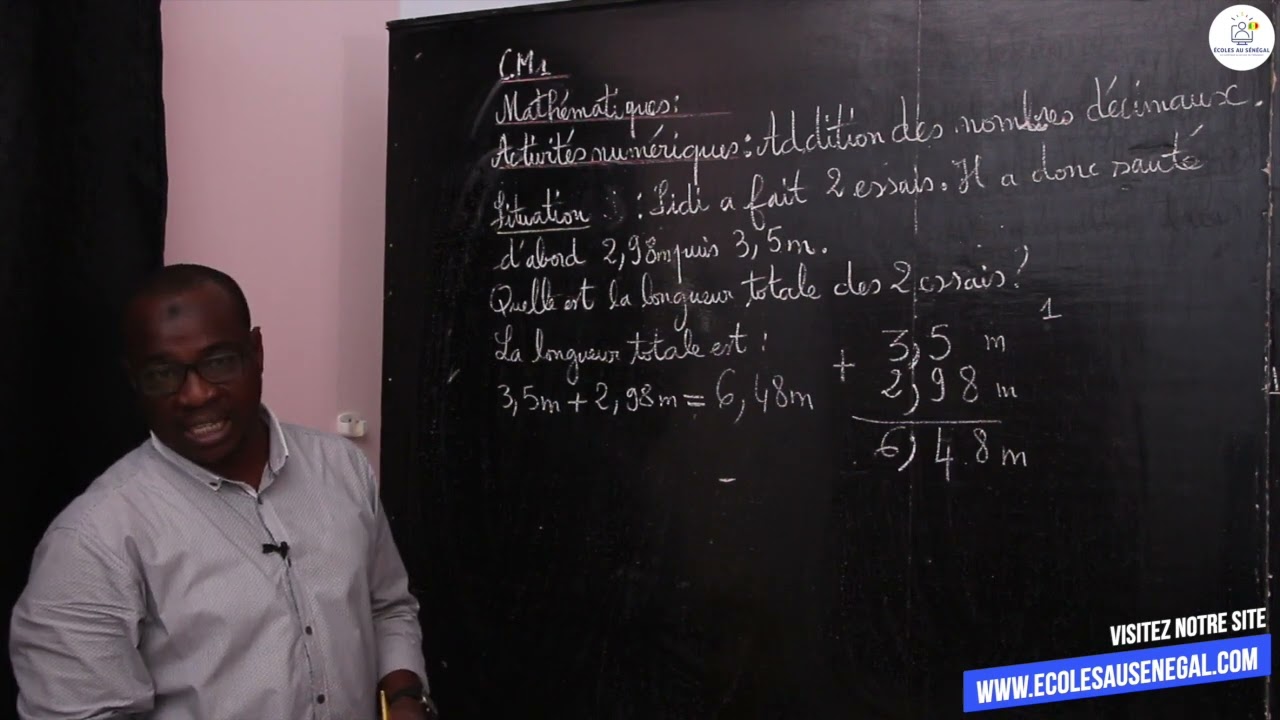 CM1
Mathématiques:
Activités numériques: Addition des nombres décimaux.
Situation : Sidi a fait 2 essais. Il a donc sauté
d'abord 2,98m puis 3,5m.
Quelle est la longueur totale des 2 essais?
La longueur totale est :
3,5m + 2,98m = 6,48m
1
3,5 m
+ 2,98 m
6,48 m
ÉCOLES AU SÉNÉGAL
VISITEZ NOTRE SITE
WWW.ECOLESAUSENEGAL.COM